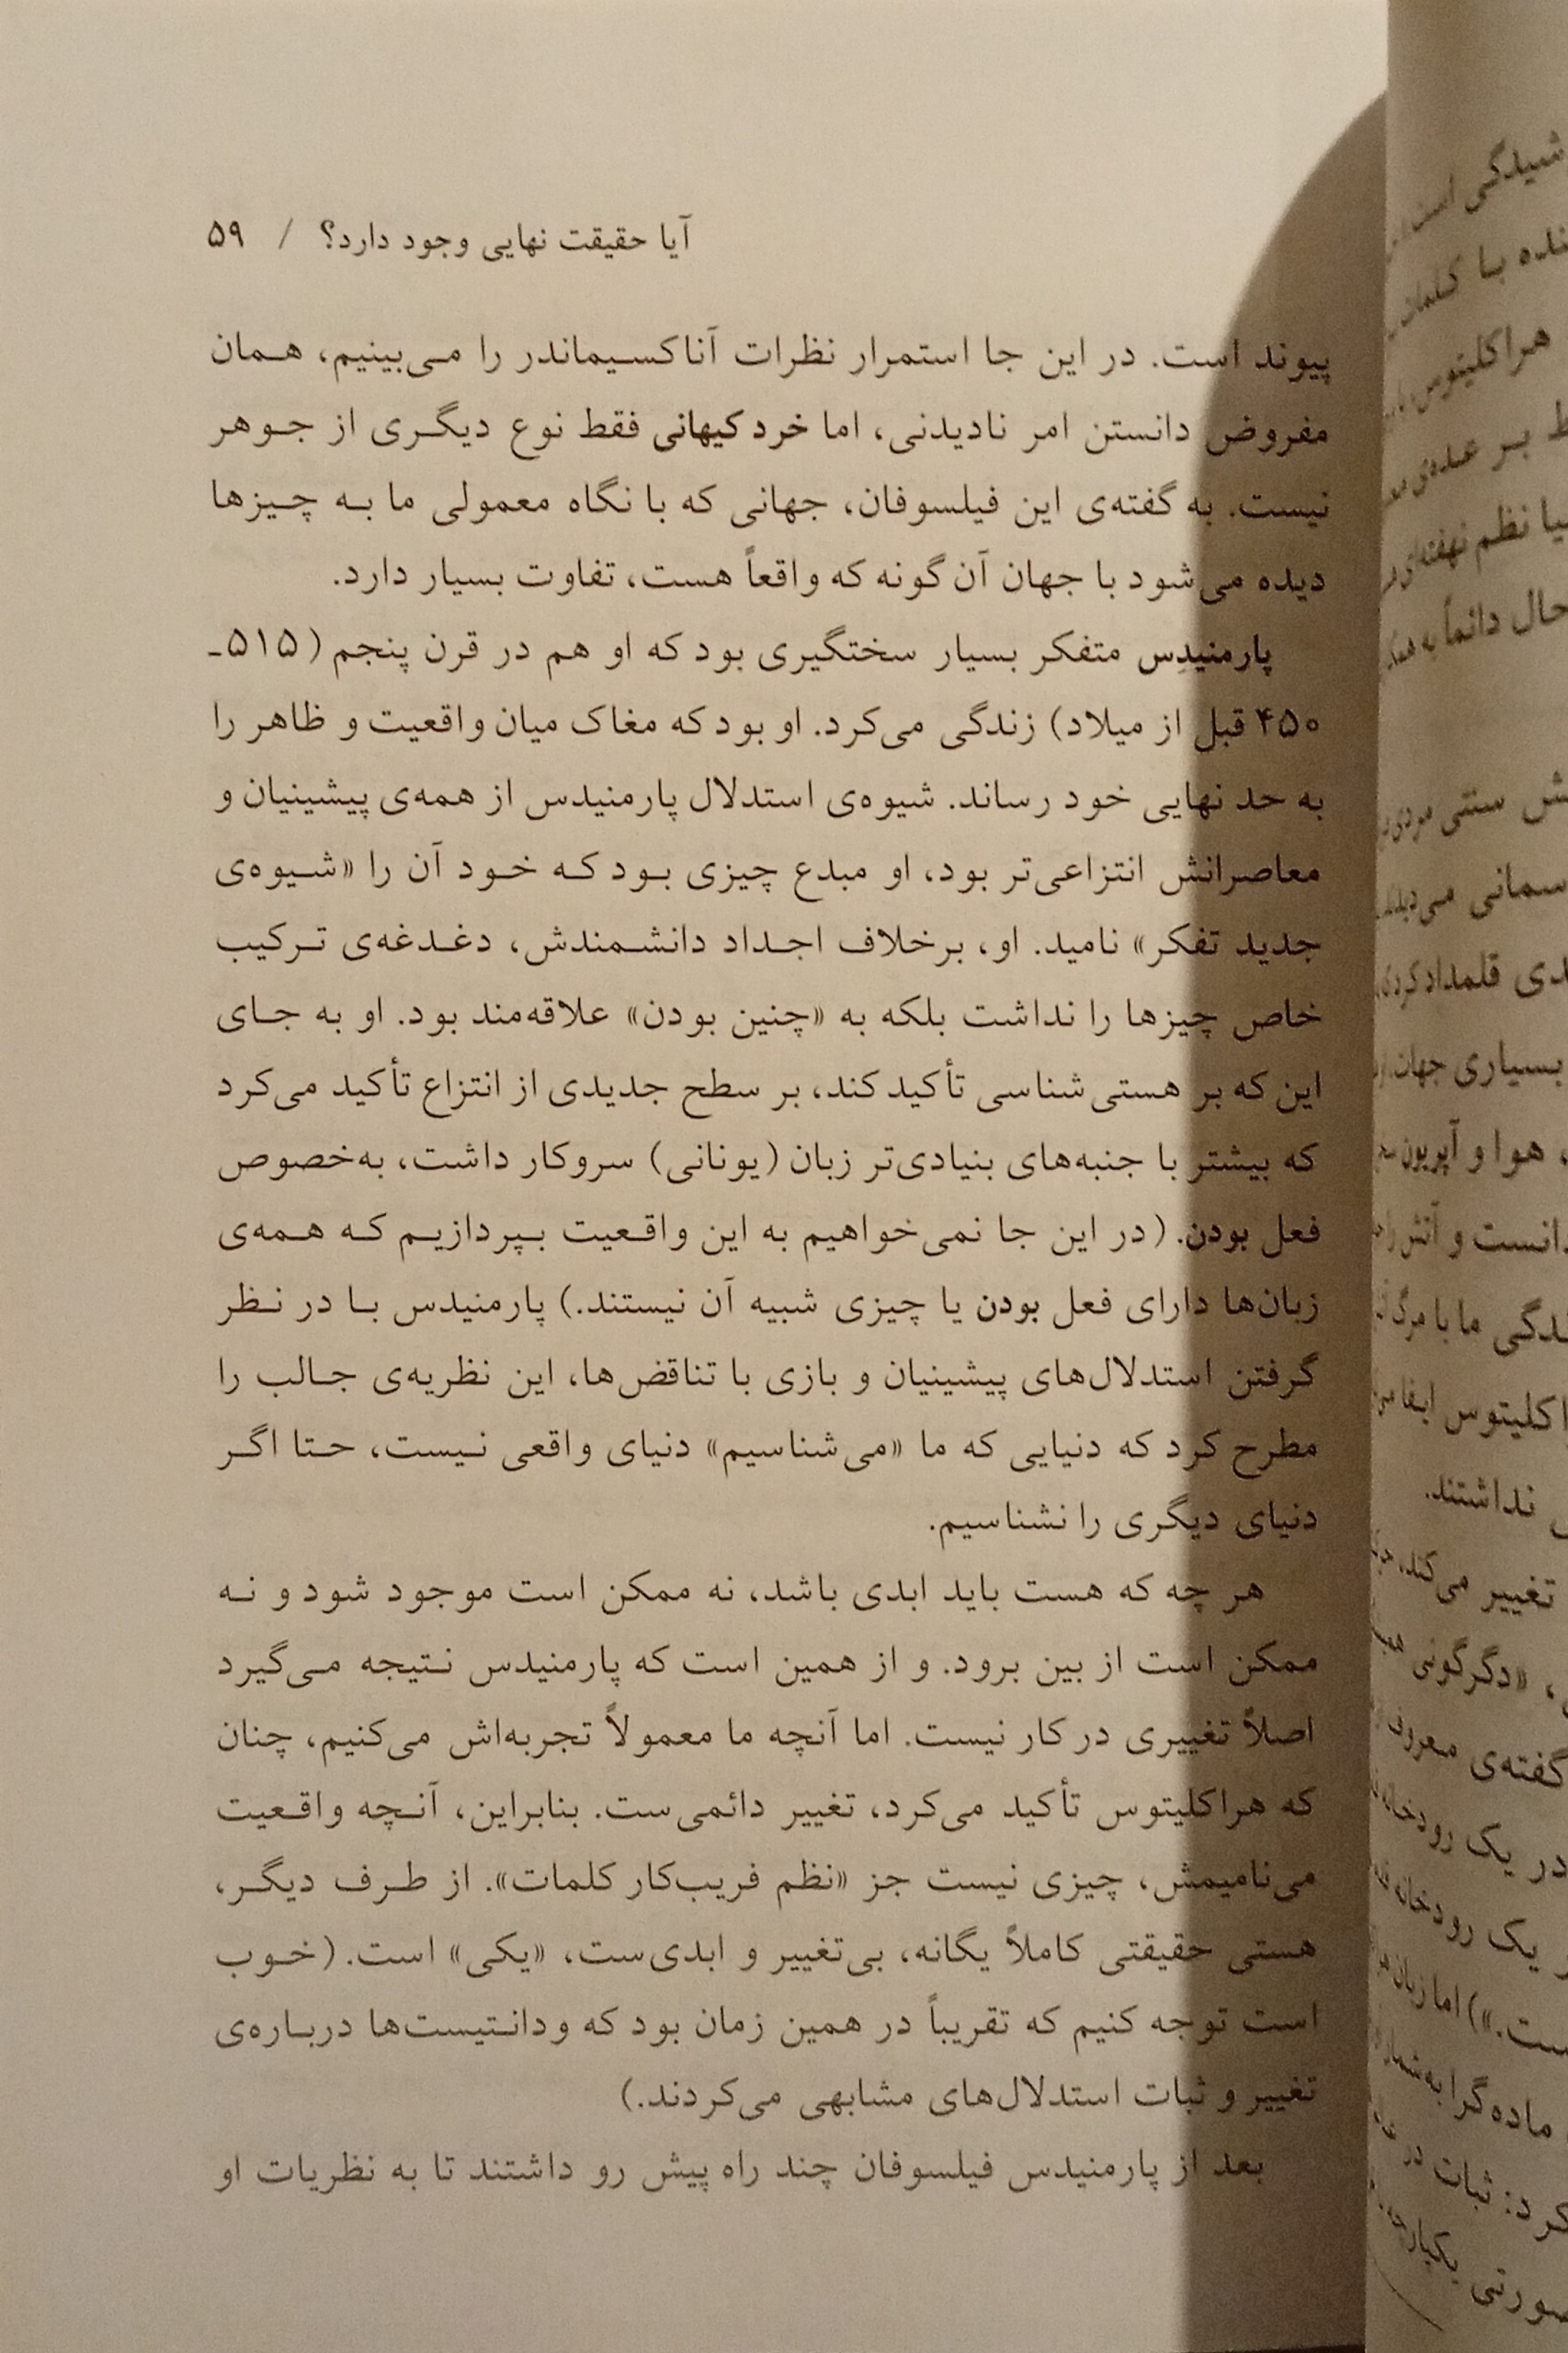 آیا حقیقت نهایی وجود دارد؟ / ۵۹
پیوند است. در این جا استمرار نظرات آناکسیماندر را می‌بینیم، همان
مفروض دانستن امر نادیدنی، اما خرد کیهانی فقط نوع دیگری از جوهر
نیست. به گفته‌ی این فیلسوفان، جهانی که با نگاه معمولی ما به چیزها
دیده می‌شود با جهان آن گونه که واقعاً هست، تفاوت بسیار دارد.
پارمنیدِس متفکر بسیار سختگیری بود که او هم در قرن پنجم (۵۱۵ـ
۴۵۰ قبل از میلاد) زندگی می‌کرد. او بود که مغاک میان واقعیت و ظاهر را
به حد نهایی خود رساند. شیوه‌ی استدلال پارمنیدس از همه‌ی پیشینیان و
معاصرانش انتزاعی‌تر بود، او مبدع چیزی بود که خود آن را «شیوه‌ی
جدید تفکر» نامید. او، برخلاف اجداد دانشمندش، دغدغه‌ی ترکیب
خاص چیزها را نداشت بلکه به «چنین بودن» علاقه‌مند بود. او به جای
این که بر هستی‌شناسی تأکید کند، بر سطح جدیدی از انتزاع تأکید می‌کرد
که بیشتر با جنبه‌های بنیادی‌تر زبان (یونانی) سروکار داشت، به‌خصوص
فعل بودن. (در این جا نمی‌خواهیم به این واقعیت بپردازیم که همه‌ی
زبان‌ها دارای فعل بودن یا چیزی شبیه آن نیستند.) پارمنیدس با در نظر
گرفتن استدلال‌های پیشینیان و بازی با تناقض‌ها، این نظریه‌ی جالب را
مطرح کرد که دنیایی که ما «می‌شناسیم» دنیای واقعی نیست، حتا اگر
دنیای دیگری را نشناسیم.
هر چه که هست باید ابدی باشد، نه ممکن است موجود شود و نه
ممکن است از بین برود. و از همین است که پارمنیدس نتیجه می‌گیرد
اصلاً تغییری در کار نیست. اما آنچه ما معمولاً تجربه‌اش می‌کنیم، چنان
که هراکلیتوس تأکید می‌کرد، تغییر دائمی‌ست. بنابراین، آنچه واقعیت
می‌نامیمش، چیزی نیست جز «نظم فریب‌کار کلمات». از طرف دیگر،
هستی حقیقتی کاملاً یگانه، بی‌تغییر و ابدی‌ست، «یکی» است. (خوب
است توجه کنیم که تقریباً در همین زمان بود که ودانتیست‌ها درباره‌ی
تغییر و ثبات استدلال‌های مشابهی می‌کردند.)
بعد از پارمنیدس فیلسوفان چند راه پیش رو داشتند تا به نظریات او
شیدگی است
با کلمات
هراکلیتوس
بر عده‌ی
نظم نهفته‌ی
حال دائماً به
سنتی مردی
می‌دیدند
قلمداد
بسیاری جهان
هوا و آپریون
دانست و آتش را
ما با مرگ
ایفا
نداشتند.
تغییر می‌کند،
«دگرگونی
گفته‌ی معروف
در یک رودخانه
یک رودخانه
اما زبان
ماده‌گرا به‌شمار
کرد: ثبات در